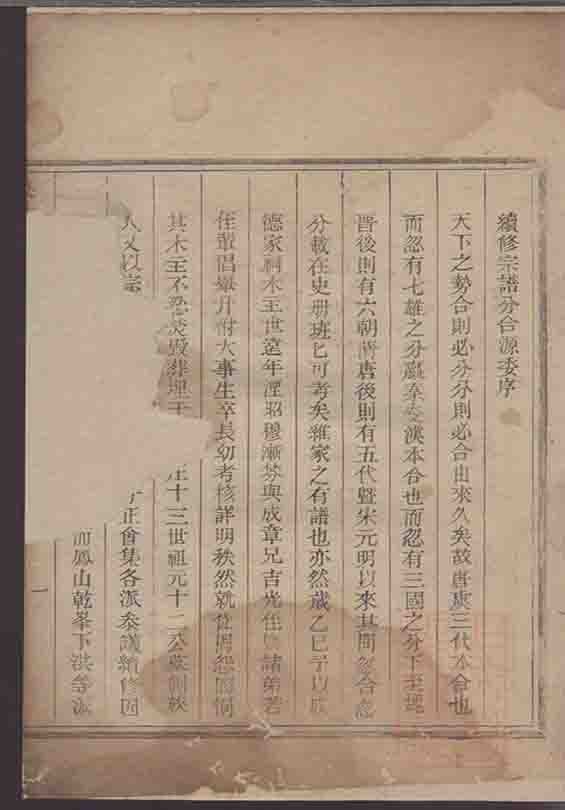 續修宗譜分合源委序
天下之勢合則必分分則必合由來久矣故唐虞三代本合也
而忽有七雄之分嬴秦及漢本合也而忽有三國之分下至
晉後則有六朝隋唐後則有五代暨宋元明以來其間忽合忽
分載在史册班班可考矣雖家之有譜也亦然歲乙巳予以
德家祠木主世遠年湮昭穆漸紊與成章兄吉光侄諸弟若
侄輩倡舉升祔大事生卒長幼考核詳明秩然就
其木主不忍焚毀葬埋于 十三世祖元十二公
人又以宗 正會集各派叅議續修因
而鳳山乾峯下洪等派